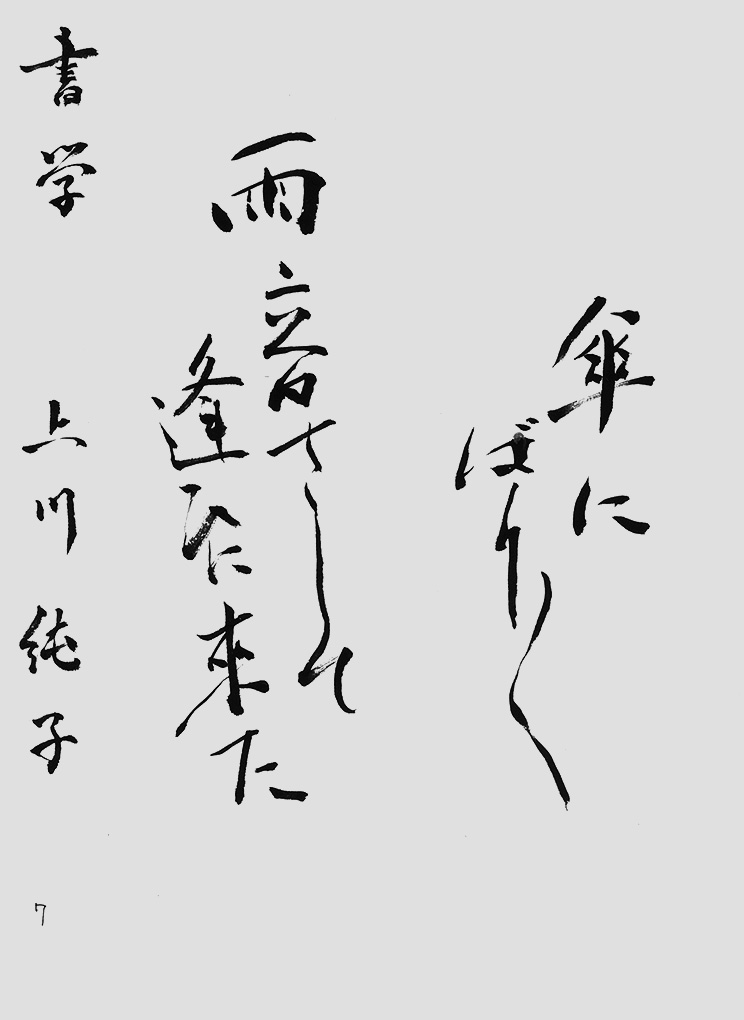 傘に
ばり〱
雨音さして
逢ひに來た
書学 上川純子
7